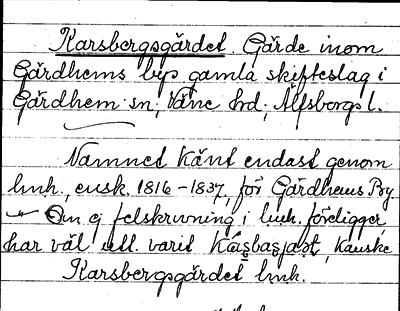 Karsbergsgärdet. Gärde inom
Gärdhems bys gamla skifteslag i
Gärdhem sn, Väne hd, Älfsborgs l.
Namnet känt endast genom
lmh., ensk. 1816-1837, för Gärdhems By.
Om ej felskrivning i lmh. föreligger,
har väl utt. varit kasbasjast, kanske
Karsbergsgärdet lmh.